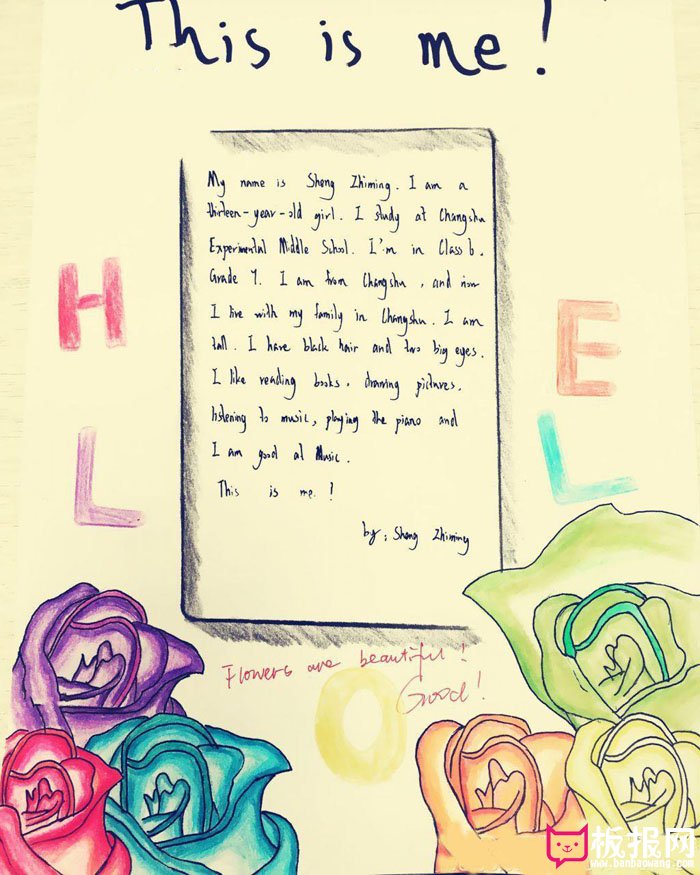 This is me!
My name is Sheng Zhiming. I am a
thirteen-year-old girl. I study at Changshu
Experimental Middle School. I'm in Class 6,
Grade 7. I am from Changshu, and now
I live with my family in Changshu. I am
tall. I have black hair and two big eyes.
I like reading books, drawing pictures,
listening to music, playing the piano and
I am good at Music.
This is me!
by: Sheng Zhiming
H
E
L
L
O
Flowers are beautiful!
Good!
板报网
www.banbaowang.com